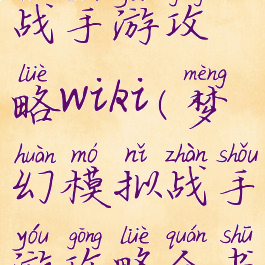 战手游攻
lüè mèng
略wiki(梦
huàn mó nǐ zhàn shǒu
幻模拟战手
yóu gōng lüè quán shū
游攻略全书